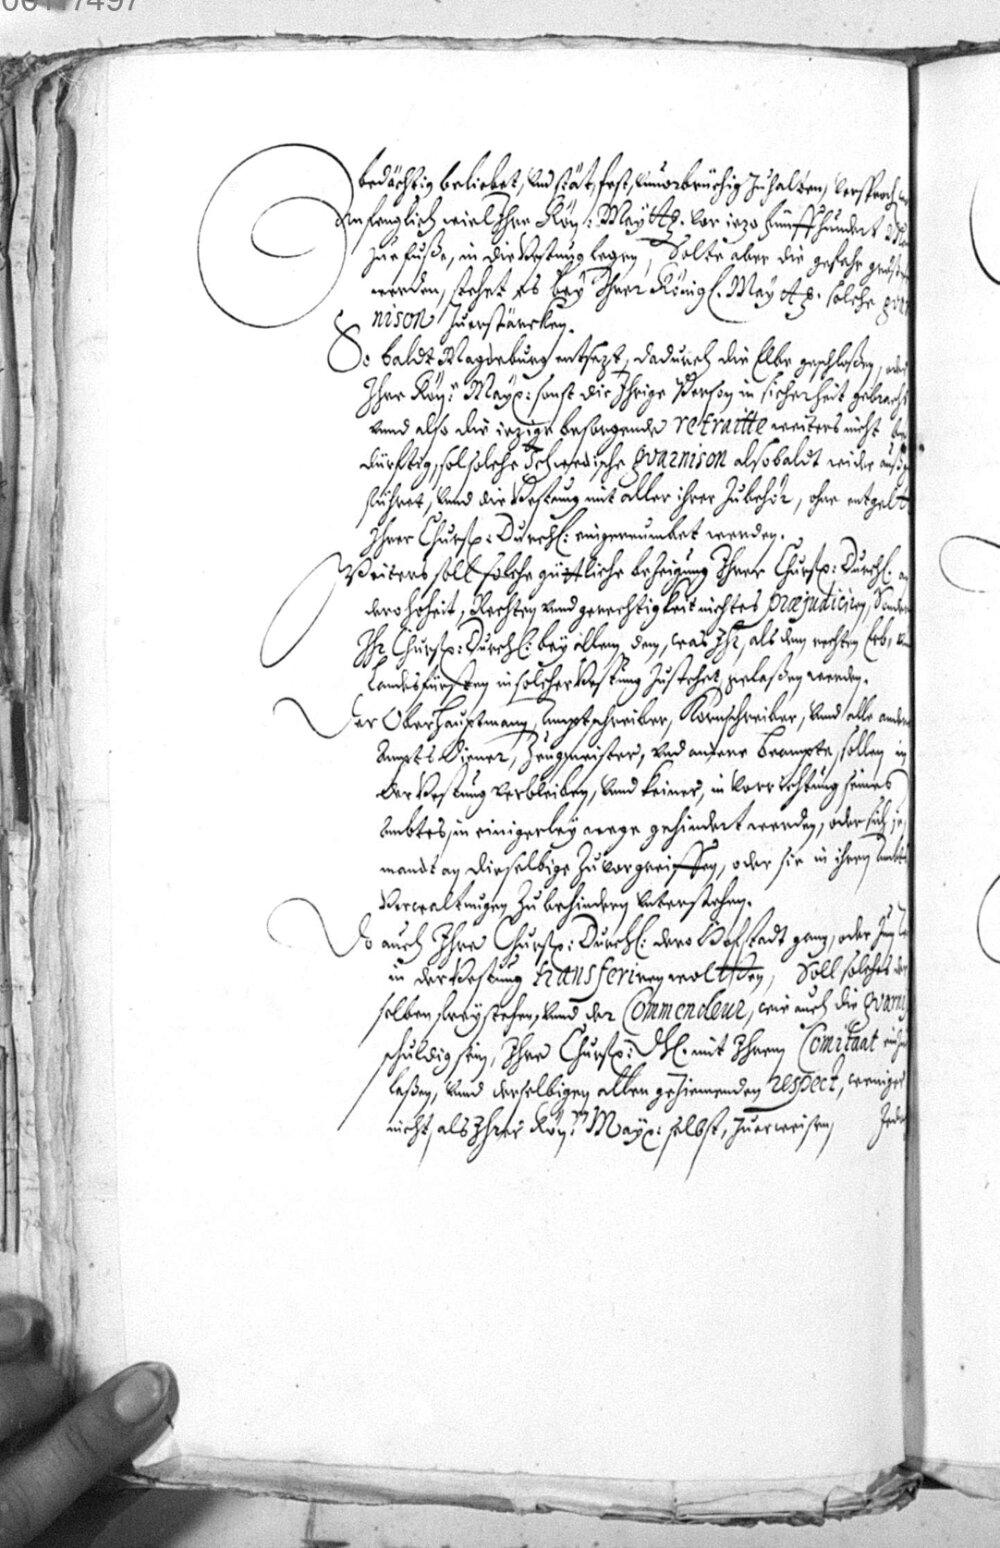 bedächtig beliebet, und stät, fest, unverbrüchig zuhalten, versproch
Anfenglich wiel Ihre Kön: Maytt. vor iezo fünffhundert
zue fuße, in die Vestung legen, Solte aber die gefahr größer
werden, stehet es bey Ihrer Königl. Maytt. solche guar
nison zuerstärcken.
So baldt Magdeburg entsezt, dadurch die Elbe geschloßen, oder
Ihre Kön: May: sonst die Ihrige Person in sicherheit gebracht
unnd also die iezige besorgende retraitte weiters nicht be
dürfftig, sol solche Schwedische guarnison alsobaldt wider außge
führet, unnd die Vestung mit aller ihrer Zubehör, ohne entgelt
Ihrer Churf: Durchl: eingereumbet werden.
Weiters soll solche güttliche bezeigung Ihrer Churf: Durchl. an
dero hoheit, Rechten unnd gerechtigkeit nichtes præjudiciren, Sondern
Ihr Churf: Durchl: bey allem dem, was Ihr, als dem rechten Erb, und
Landesfürsten in solcher Vestung zustehet, gelaßen werden.
Der Oberhauptmann, Amptschreiber, Kornschreiber, unnd alle andere
Ampts Diener, Zeugmeister, und andere Beampte, sollen in
der Vestung verbleiben, unnd keiner, in verrichtung seines
Ambtes, in einigerley wege gehindert werden, oder sich je,
mandt an dieselbige zuvorgreiffen, oder sie in ihren Ambts
Verwaltungen zu behindern unterstehen.
Do auch Ihre Churf: Durchl: dero Hofstadt ganz, oder zum
in der Vestung transferiren wolten, Soll solches der
selben frey stehen, unnd der Commendeur, wie auch die guarni
schuldig sein, Ihre Churf: Dhl. mit Ihrem Comitaat einzu
laßen, unnd derselbigen allen geziemenden respect, weniger
nicht, als Ihrer Kön: May: selbst, zuerweisen, Jedo